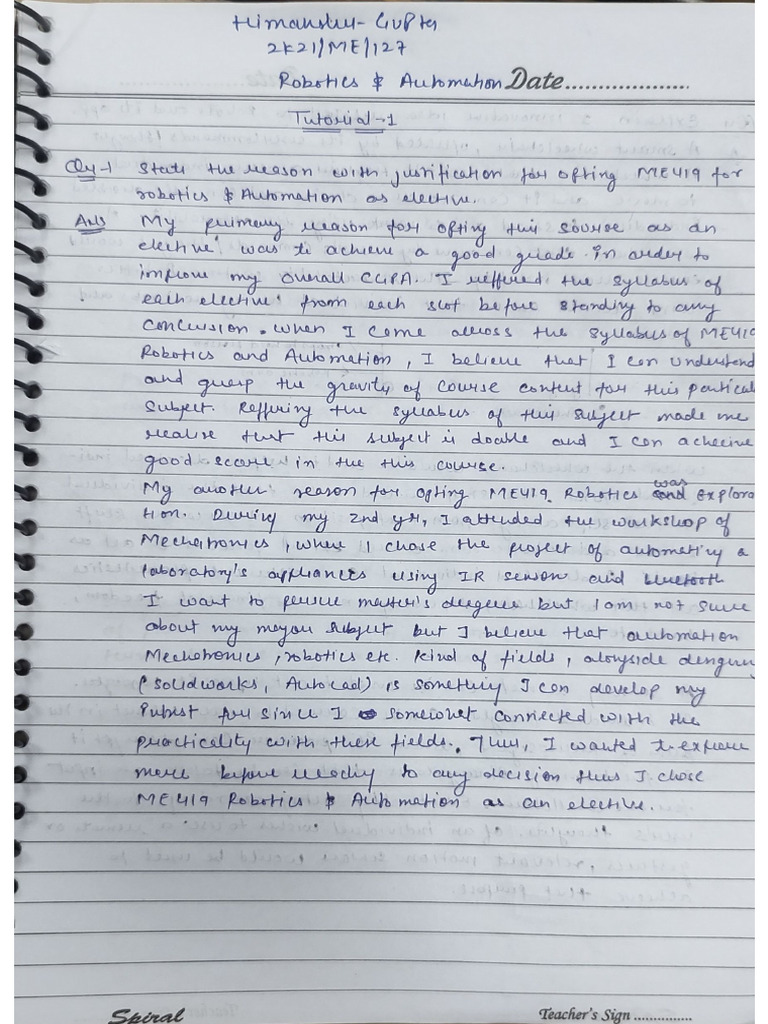 Himanshu Gupta
2K21/ME/127
Robotics & Automation Date....................
Tutorial-1
Qu-1 State the reason with justification for opting ME419 for
robotics & Automation as elective.
Ans My primary reason for opting this course as an
elective was to achieve a good grade in order to
improve my overall CGPA. I reffered the syllabus of
each elective from each slot before standing to any
conclusion. When I come across the syllabus of ME419
Robotics and Automation, I believe that I can understand
and grasp the gravity of course content for this particul
subject. Reffiring the syllabus of this subject made me
realise that this subject is doable and I can acheive
good score in the this course.
My another reason for opting ME419 Robotics was explora
tion. During my 2nd yr, I attended the workshop of
Mechatronics, where I chose the project of automating a
laboratory's appliances using IR sensor and bluetooth
I want to persue master's degree but I am not sure
about my major subject but I believe that automation
Mechatronics, robotics etc. kind of fields, alongside
(Solidworks, AutoCad) is something I can develop my
for since I somewhat connected with the
practicality with these fields. Thus, I wanted to explore
more before to any decision thus I chose
ME419 Robotics & Automation as an elective.
Spiral Teacher's Sign ..............